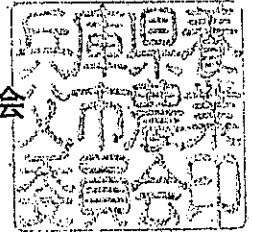 会
兵庫県養
父市農業
委員会印